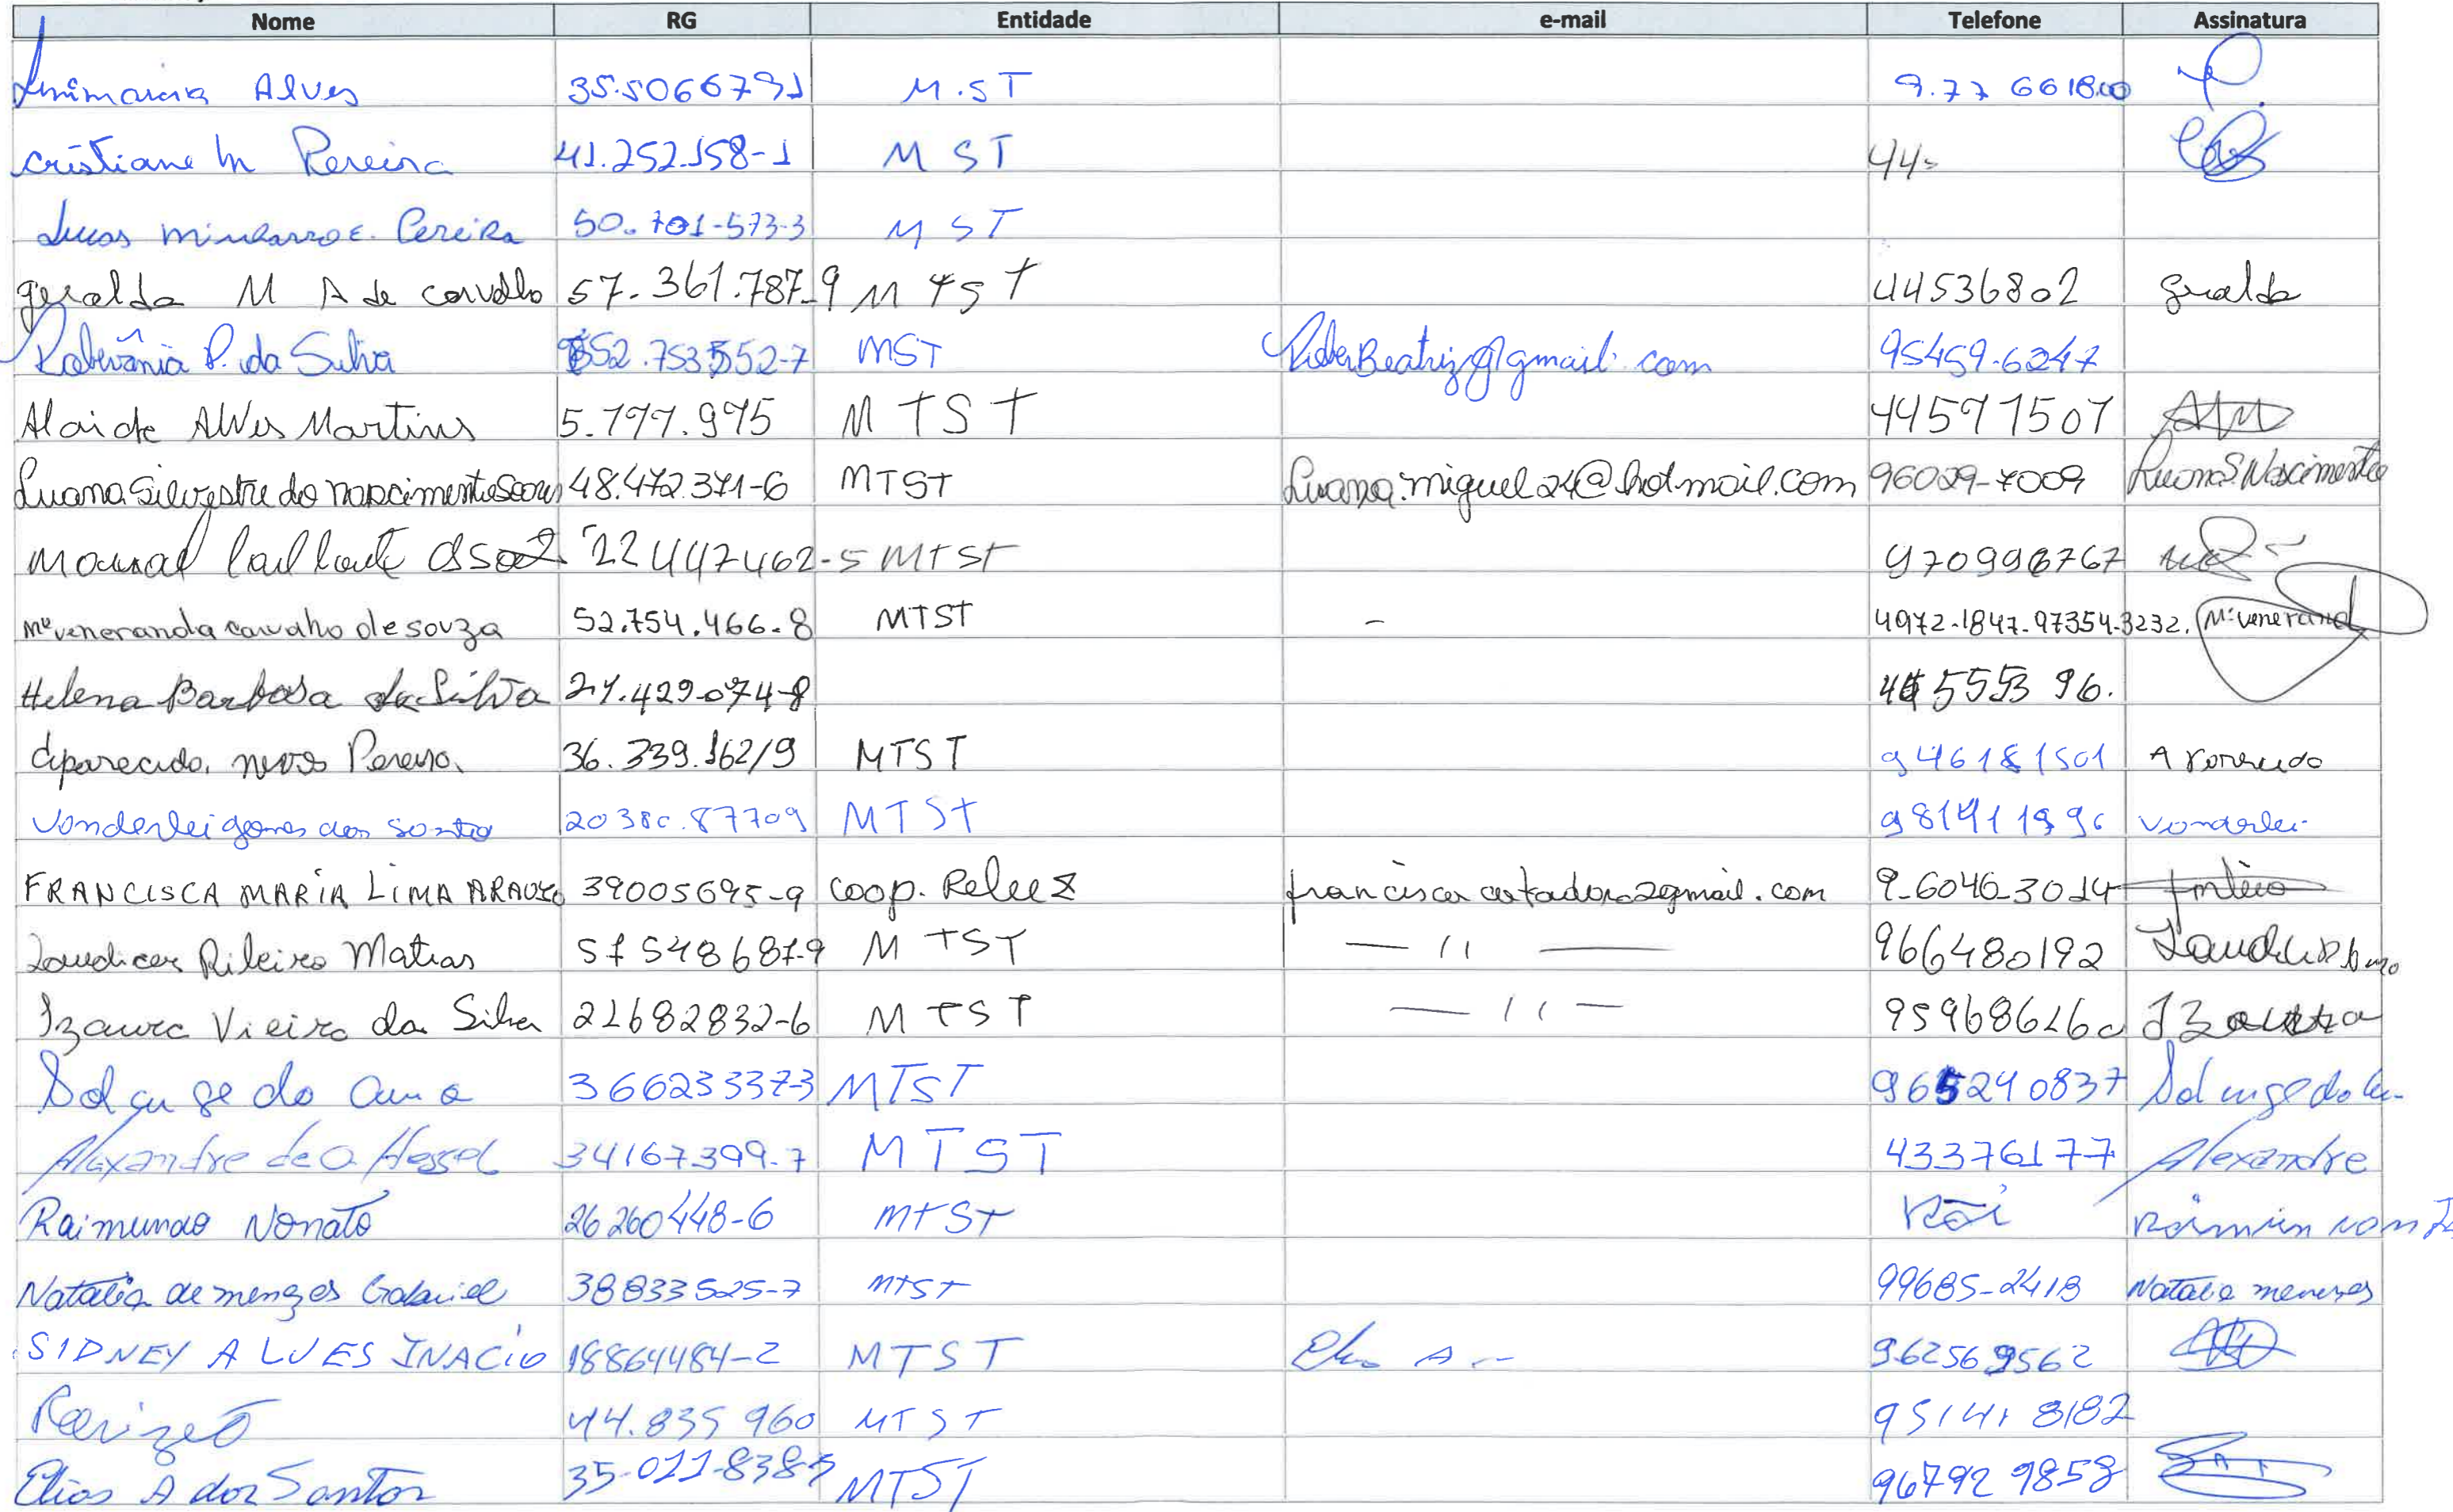 Nome RG Entidade e-mail Telefone Assinatura
Alves 35.5066791 M.ST 9.77 661800
cristiane M Pereira 41.252.158-1 MST 44-
Lucas Pereira 50.701-573-3 MST
geralda M A de carvalho 57.361.787-9 MTST 44536802 geralda
Robevânia P. da Silva 52.753552-7 MST 95459-6247
Alaide Alves Martins 5.797.975 MTST 44597507
Luana Silvestre do nascimento 48.472.371-6 MTST Luana.miguel24@hotmail.com 96029-7009 Luana S. Nascimento
22447462-5 MTST 970996767
Mª veneranda carvalho de souza 52.754.466-8 MTST - 4972-1847-97354-3232. Mª veneranda
Helena Barbosa da Silva 27.429-074-8
Aparecido neves Pereira. 36.339.162/9 MTST 946181501
Vanderlei gomes dos santos 20380.87709 MTST Vanderlei
FRANCISCA MARIA LIMA ARAUJO 39005695-9 Coop. Reluz 9-6046-3014
Laudicea Ribeiro Matias MTST — 11 — 966480192
Izaura Vieira da Silva 21682832-6 MTST — 11 — Izaura
366233373 MTST 965240837
Alexandre de O. 34167399-7 MTST 43376177 Alexandre
Raimundo Nonato 26260448-6 MTST
Natalia de menezes Gabriel 38833525-7 MTST 99685-2418 Natalia menezes
SIDNEY ALVES INACIO 18864484-2 MTST 962569562
44.835 960 MTST 951418182
Elias A dos Santos MTST 96792 9858